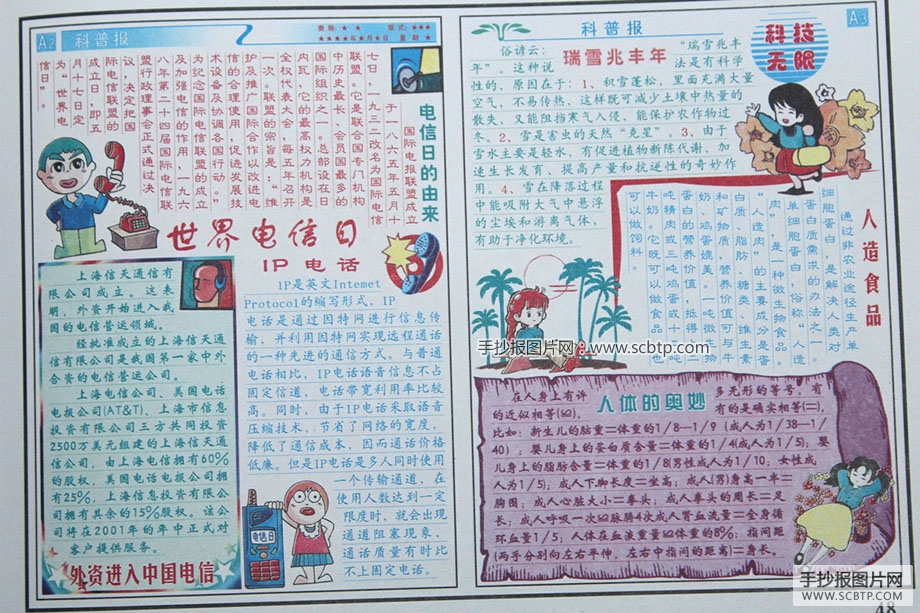 A2
科普报
责编：★ ★ 版式：★★★
★★★★年★月★日 星期★
电信日的由来
国际电报联盟成立
于一八六五年五月十
七日，一九三二改名为国际电信
联盟。它是联合国专门机构
中历史最长、会员国最多的
国际组织之一。总部设在日
内瓦，它的最高权力机构是
全权代表大会，每五年召开
一次。联盟的宗旨是：“维
护及推广国际合作以改进电
信的合理使用，促进发展技
术设备及协调各国行动。”
为纪念国际电信联盟的成立
及加强电信的作用，一九六
八年第二十四届国际电信联
盟行政理事会正式通过决
议，决定把国
际电信联盟的
成立日，即五
月十七日定
为“世界电
信日”。
世界电信日
IP电话
IP是英文Internet
Protocol的缩写形式。IP
电话是通过因特网进行信息传
输，并利用因特网实现远程通话
的一种先进的通信方式。与普通
电话相比，IP电话语音信息不占
固定信道，电话带宽利用率比较
高。同时，由于IP电话采取语音
压缩技术，节省了网络的宽度，
降低了通信成本，因而通话价格
低廉。但是IP电话是多人同时使用
一个传输通道，在
使用人数达到一定
限度时，就会出现
通道阻塞现象，
通话质量有时比
不上固定电话。
电信日
上海信天通信有
限公司成立。这表
明，外资开始进入我
国的电信营运领域。
经批准成立的上海信天通
信有限公司是我国第一家中外
合资的电信营运公司。
上海电信公司、美国电话
电报公司(AT&T)、上海市信息
投资有限公司三方共同投资
2500万美元组建的上海信天通
信公司，由上海电信拥有60%
的股权，美国电话电报公司拥
有25%，上海信息投资有限公
司拥有其余的15%股权。该公
司将在2001年的年中正式对
客户提供服务。
外资进入中国电信
科普报
A3
科技
无限
瑞雪兆丰年
俗谚云：“瑞雪兆丰
年”。这种说法是有科学
性的，原因在于：1、积雪蓬松，里面充满大量
空气，不易传热，这样既可减少土壤中热量的
散失，又能阻挡寒气入侵，能保护农作物过
冬。2、雪是害虫的天然“克星”。3、由于
雪水主要是轻水，有促进植物新陈代谢、加
速生长发育、提高产量和抗逆性的奇妙作
用。4、雪在降落过程
中能吸附大气中悬浮
的尘埃和游离气体，
有助于净化环境。
人造食品
通过非农业途径生产单
细胞蛋白，是解决人类对
蛋白质需求的办法之一。
单细胞蛋白，俗称“人造
肉”，是一种微生物食品。
“人造肉”的主要成分是蛋
白质、脂肪、糖类、维生素
和矿物质，营养价值可与牛
奶、鸡蛋媲美。一吨微生物
蛋白的营养价值，抵得上二
吨肉或三吨鸡蛋或十二吨
牛奶。它既可以做食品，也
可以做饲料。
手抄报图片网 www.scbtp.com
人体的奥妙
在人身上有许多无形的等号。有
的近似相等(≌)，有的是确实相等(=)，
比如：新生儿的脑重=体重的1/8—1/9（成人为1/38—1/
40）；婴儿身上的蛋白质含量=体重的1/4(成人为1/5)；婴
儿身上的脂肪含量=体重的1/8(男性成人为1/10；女性成
人为1/5)；成人下脚长度=坐高；成人(男)身高一半=
胸围；成人心脏大小=拳头；成人拳头的周长=足
长；成人呼吸一次≌脉膊4次成人肾血流量=全身循
环血量1/5；人体总血液重量≌体重的8%；指间距
(两手分别向左右平伸，左右中指间的距离)=身长。
手抄报图片网
WWW.SCBTP.COM
48